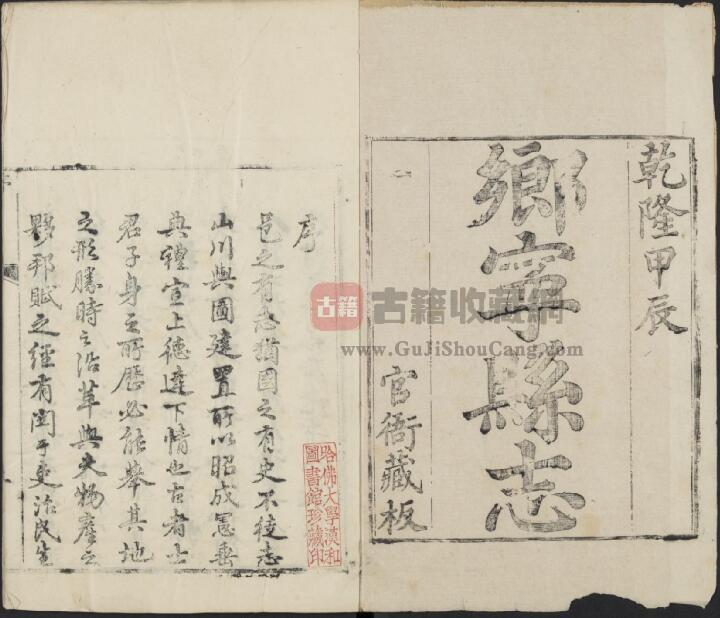 乾隆甲辰
鄉寧縣志
官衙藏板
序
邑之有志猶國之有史不徒志
山川輿圖建置所以昭成憲垂
典禮宣上德達下情也古者士
君子身之所歷必能舉其地
之形勝時之沿革與夫物產之
夥邦賦之經有關于吏治民生
哈佛大學漢和
圖書館珍藏印
古籍
古籍收藏網
www.GuJiShouCang.com